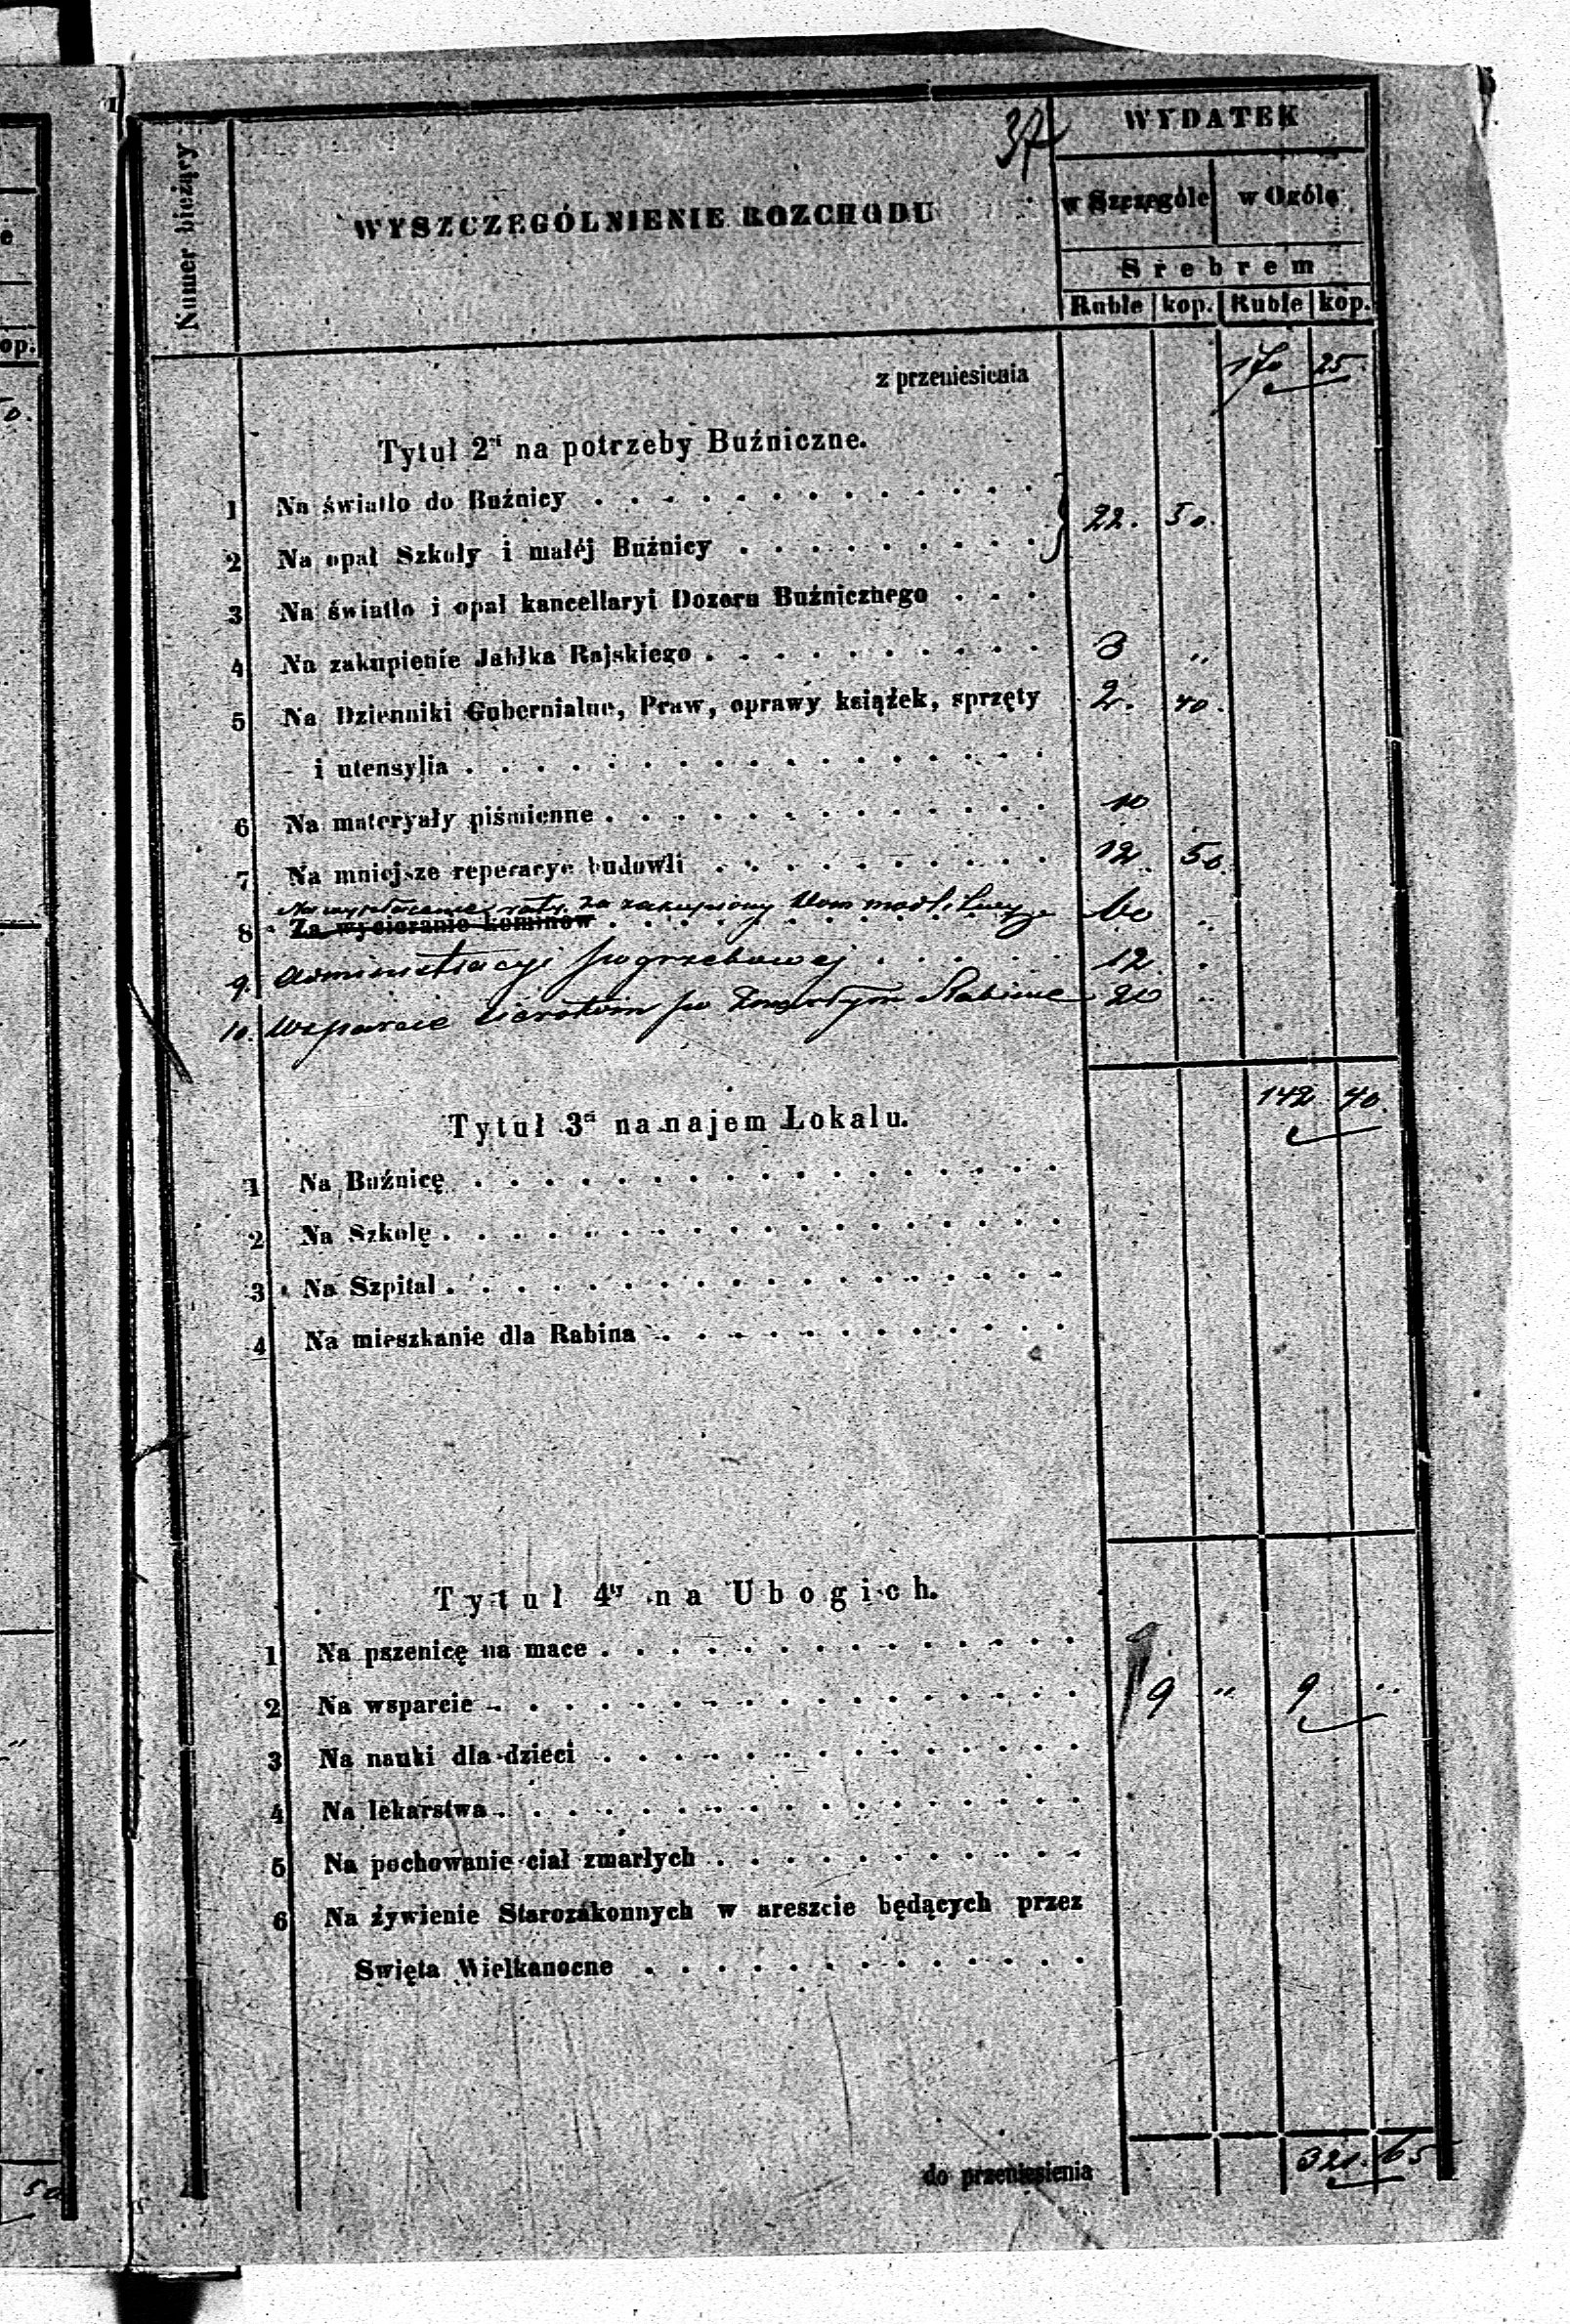 37
WYDATEK
Numer bieżący
WYSZCZEGÓLNIENIE ROZCHODU
w Szczególe w Ogóle
Srebrem
Ruble kop. Ruble kop.
z przeniesienia 170 25
Tytuł 2gi na potrzeby Buźniczne.
1 Na światło do Buźnicy
22. 50.
2 Na opał Szkoły i małéj Buźnicy
3 Na światło i opał kancellaryi Dozoru Buźnicznego
4 Na zakupienie Jabłka Rajskiego 3 "
5 Na Dzienniki Gubernialne, Praw, oprawy książek, sprzęty 2. 40.
i utensylia
6 Na materyały piśmienne 10
7 Na mniejsze reperacye budowli 12. 50.
Na wypłacenie raty za zakupiony Dom modlitwy 60 "
8 Za wycieranie kominów
9. Administracyi pogrzebowej 12. "
10. Wsparcie sierotom po Zmarłym Rabinie 20 "
142 40.
Tytuł 3ci na najem Lokalu.
1 Na Buźnicę
2 Na Szkołę
3 Na Szpital
4 Na mieszkanie dla Rabina
Tytuł 4ty na Ubogich.
1 Na pszenicę na mace
2 Na wsparcie 9 " 9 "
3 Na nauki dla dzieci
4 Na lekarstwa
5 Na pochowanie ciał zmarłych
6 Na żywienie Starozakonnych w areszcie będących przez
Swięta Wielkanocne
do przeniesienia 321. 65